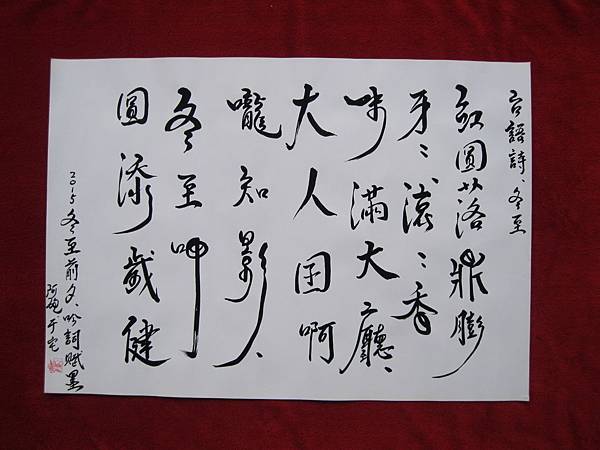 台語詩、冬至
紅圓落鼎膨
牙〻、滾〻香
味滿大廳、
大人囝啊
嚨知影、
冬至呷
圓添歲健
2015冬至前夕、吟詞賦墨
于宅